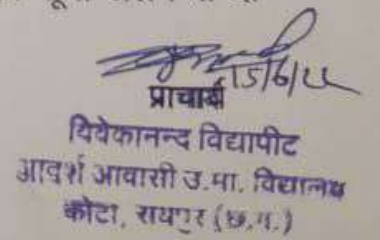 15/6/22
प्राचार्य
विवेकानन्द विद्यापीट
आदर्श आवासी उ.मा. विद्यालय
कोटा, रायपुर (छ.ग.)